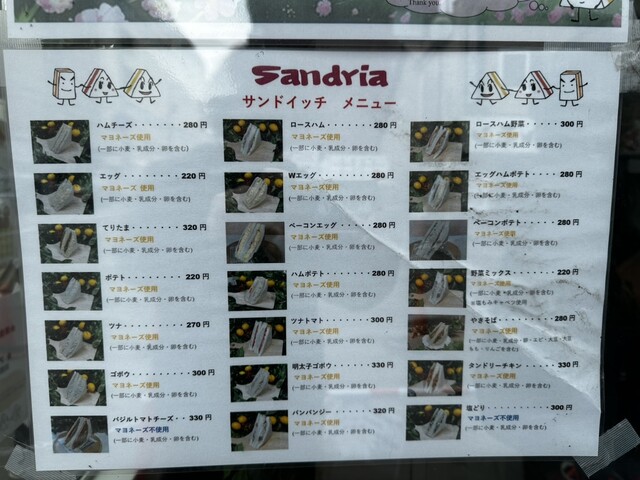 Thank you.
Sandria
サンドイッチ メニュー
ハムチーズ・・・・・・・・280円
マヨネーズ使用
(一部に小麦・乳成分・卵を含む)
エッグ・・・・・・・・・・220円
マヨネーズ 使用
(一部に小麦・乳成分・卵を含む)
てりたま・・・・・・・・・320円
マヨネーズ 使用
(一部に小麦・乳成分・卵を含む)
ポテト・・・・・・・・・・220円
マヨネーズ使用
(一部に小麦・乳成分・卵を含む)
ツナ・・・・・・・・・・・270円
マヨネーズ使用
(一部に小麦・乳成分・卵を含む)
ゴボウ・・・・・・・・・・300円
マヨネーズ使用
(一部に小麦・乳成分・卵を含む)
バジルトマトチーズ・・330円
マヨネーズ不使用
(一部に小麦・乳成分・卵を含む)
ロースハム・・・・・・・・280円
マヨネーズ使用
(一部に小麦・乳成分・卵を含む)
Wエッグ・・・・・・・・・280円
マヨネーズ使用
(一部に小麦・乳成分・卵を含む)
ベーコンエッグ・・・・・280円
マヨネーズ使用
(一部に小麦・乳成分・卵を含む)
ハムポテト・・・・・・・・280円
マヨネーズ使用
(一部に小麦・乳成分・卵を含む)
ツナトマト・・・・・・・・300円
マヨネーズ使用
(一部に小麦・乳成分・卵を含む)
明太子ゴボウ・・・・・・330円
マヨネーズ使用
(一部に小麦・乳成分・卵を含む)
バンバンジー・・・・・・320円
マヨネーズ使用
(一部に小麦・乳成分・卵を含む)
ロースハム野菜・・・・・300円
マヨネーズ使用
(一部に小麦・乳成分・卵を含む)
エッグハムポテト・・・・280円
マヨネーズ使用
(一部に小麦・乳成分・卵を含む)
ベーコンポテト・・・・・280円
マヨネーズ使用
(一部に小麦・乳成分・卵を含む)
野菜ミックス・・・・・・220円
マヨネーズ使用
(一部に小麦・乳成分・卵を含む)
※塩もみキャベツ使用
やきそば・・・・・・・・・280円
マヨネーズ使用
(一部に小麦・乳成分・卵・エビ・大豆・
もも・りんごを含む)
タンドリーチキン・・・・330円
マヨネーズ使用
(一部に小麦・乳成分・卵を含む)
塩どり・・・・・・・・・・300円
マヨネーズ不使用
(一部に小麦・乳成分・卵を含む)